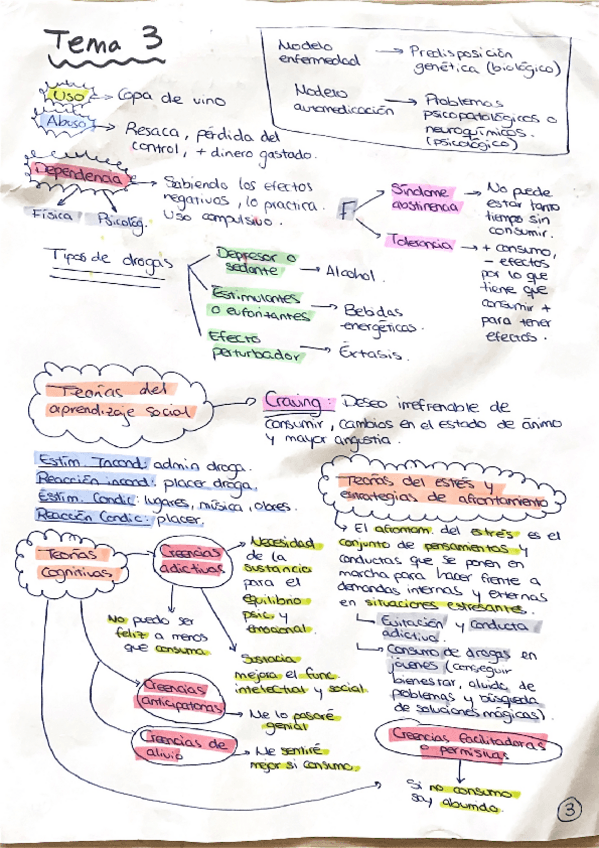 Tema 3
Modelo
enfermedad
Predisposición
genética (biológico)
Modelo
automedicación
Problemas
psicopatológicos o
neuroquímicos.
(psicológico)
Uso
Copa de vino
Abuso
Resaca, pérdida del
control, + dinero gastado.
Dependencia
Sabiendo los efectos
negativos, lo practica.
Uso compulsivo.
Física
Psicológ.
F
Síndrome
abstinencia
No puede
estar tanto
tiempo sin
consumir.
Tolerancia
+ consumo,
- efectos
por lo que
tiene que
consumir +
para tener
efectos.
Tipos de drogas
Depresor o
sedante
Alcohol.
Estimulantes
o euforizantes
Bebidas
energéticas.
Efecto
perturbador
Éxtasis.
Teorías del
aprendizaje social
Craving: Deseo irrefrenable de
consumir, cambios en el estado de ánimo
y mayor angustia.
Estim. Incond: admin droga.
Reacción incond: placer droga.
Estim. Condic: lugares, música, olores.
Reacción Condic: placer.
Teorías
Cognitivas
Creencias
adictivas
Necesidad
de la
sustancia
para el
equilibrio
psic. y
emocional.
No puedo ser
feliz a menos
que consuma.
Sustacia
mejora el func.
intelectual y social.
Creencias
anticipatorias
Me lo pasaré
genial
Creencias de
alivio
Me sentiré
mejor si consumo.
Teorías del estrés y
estrategias de afrontamiento
El afrontam. del estrés es el
conjunto de pensamientos y
conductas que se ponen en
marcha para hacer frente a
demandas internas y externas
en situaciones estresantes.
Evitación y conducta
adictiva.
Consumo de drogas en
jóvenes (conseguir
bienestar, aluido, de
problemas y búsqueda
de soluciones mágicas).
Creencias facilitadoras
o permisivas
Si no consumo
soy aburrido.
3